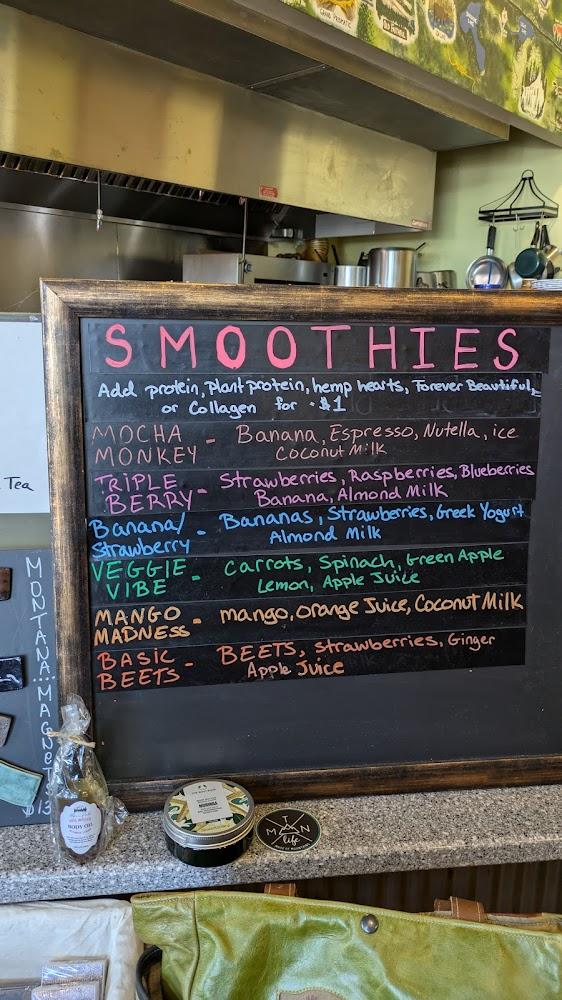 SMOOTHIES
Add protein, Plant protein, hemp hearts, Forever Beautiful,
or Collagen for $1
MOCHA MONKEY - Banana, Espresso, Nutella, ice
Coconut Milk
TRIPLE BERRY - Strawberries, Raspberries, Blueberries
Banana, Almond Milk
Banana/ Strawberry - Bananas, Strawberries, Greek Yogurt
Almond Milk
VEGGIE VIBE - Carrots, Spinach, Green Apple
Lemon, Apple Juice
MANGO MADNESS - mango, orange Juice, Coconut Milk
BASIC BEETS - BEETS, strawberries, Ginger
Apple Juice
Tea
MONTANA
BODY OIL
MTAN
life